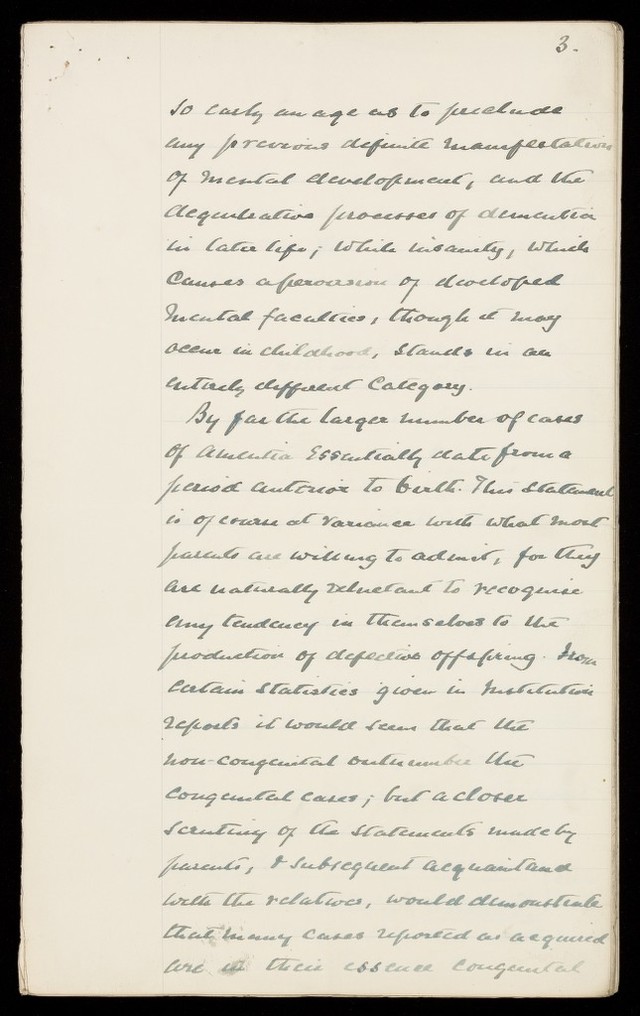 3.
so early an age as to preclude
any previous definite manifestation
of mental development, and the
degenerative processes of dementia
in later life; while insanity, which
causes a perversion of developed
mental faculties, though it may
occur in childhood, stands in an
entirely different category.
By far the larger number of cases
of Amentia essentially date from a
period anterior to birth. This statement
is of course at variance with what most
parents are willing to admit, for they
are naturally reluctant to recognise
any tendency in themselves to the
production of defective offspring. From
certain statistics given in Institution
reports it would seem that the
non-congenital outnumber the
congenital cases; but a closer
scrutiny of the statements made by
parents, & subsequent acquaintance
with the relatives, would demonstrate
that many cases reported as acquired
are in their essence congenital